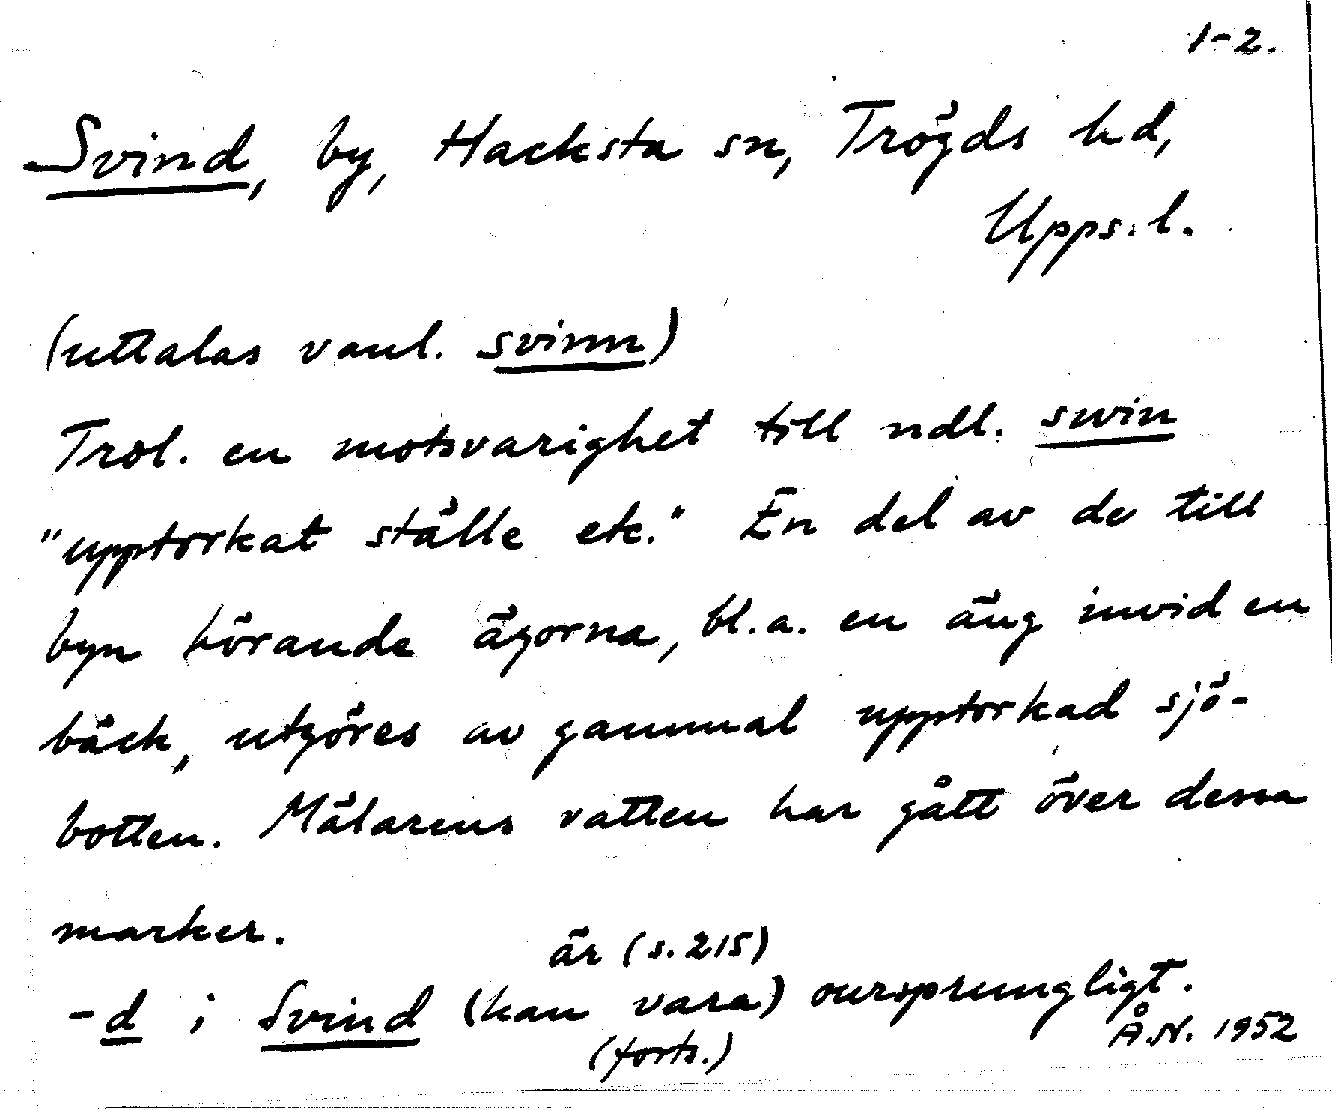 1-2.
Svind, by, Hacksta sn, Trögds hd,
Upps. l.
(uttalas vanl. svinn)
Trol. en motsvarighet till ndl. swin
"upptorkat ställe etc." En del av de till
byn hörande ägorna, bl.a. en äng invid en
bäck, utgöres av gammal upptorkad sjö-
botten. Mälarens vatten har gått över dessa
marker.
är (s. 215)
-d i Svind (kan vara) oursprungligt.
(forts.)
Å.N. 1952